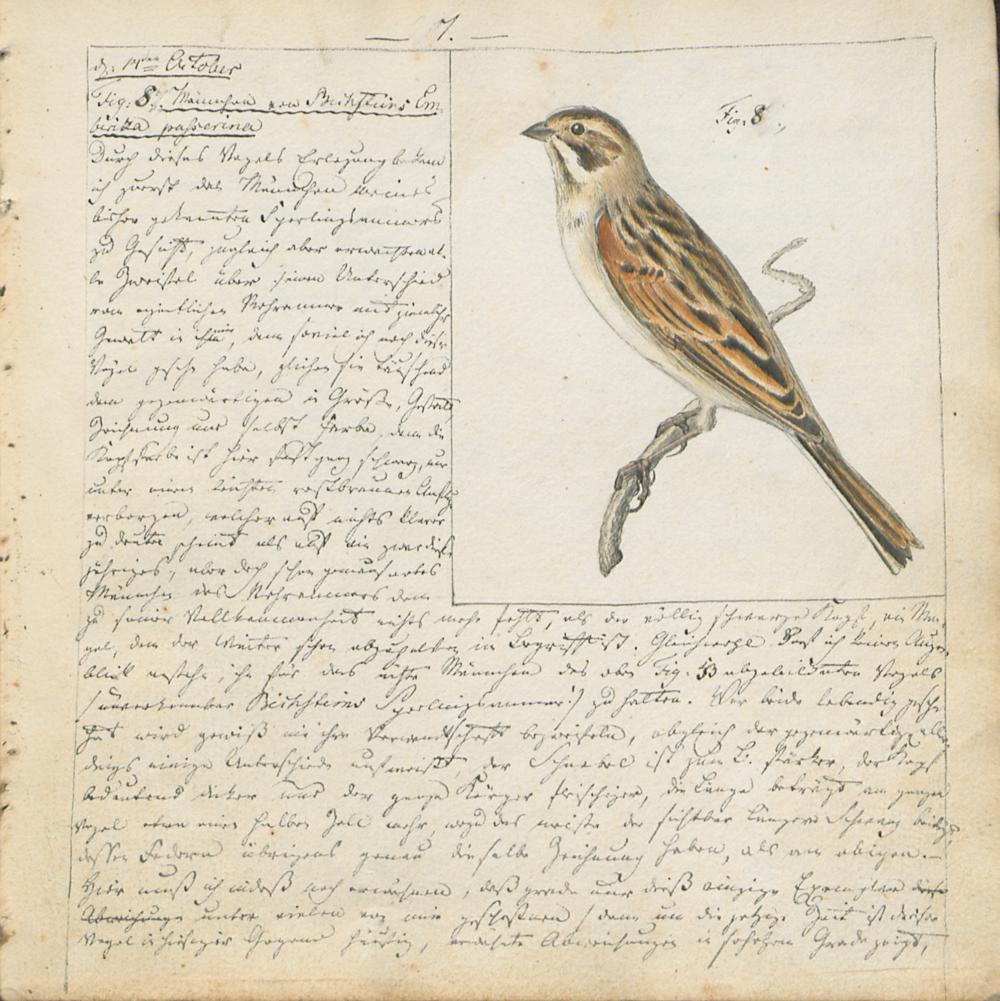 — 7. —
d: 14ten October
Fig: 8. Männchen von Bechsteins Em-
beriza passerina
Fig: 8.,
Durch dieses Vogels Erlegung bekam
ich zuerst das Männchen meines
bisher gekannten Sperlingsammers
zu Gesicht, zugleich aber erwachten al-
le Zweifel über seinen Unterschied
vom eigentlichen Rohrammer mit
Gewalt in mir, denn soviel ich noch diese
Vögel gesehn habe, glichen sie täuschend
dem gegenwärtigen in Größe, Gestalt,
Zeichnung und selbst Farbe, denn die
Kopffarbe ist hier fast ganz schwarz, nur
unter einem leichten rostbraunen Anflug
verborgen, welcher auf nichts klarer
zu deuten scheint als auf ein zwar dieß-
jähriges, aber doch schon
Männchen des Rohrammers dem
zu seiner Vollkommenheit nichts mehr fehlt, als der völlig schwarze Kopf, ein Man-
gel, dem der Winter schon abzuhelfen im Begriff ist. Gleichwohl darf ich keinen Augen-
blick anstehn, ihn für das ächte Männchen des oben Fig: 53 abgebildeten Vogels
(unverkennbar Bechsteins Sperlingsammer!) zu halten. Wer beide lebendig gesehn
hat wird gewiß nie ihre Verwandtschaft bezweifeln, obgleich der gegenwärtige aller-
dings einige Unterschiede aufweist, der Schnabel ist zum B. stärker, der Kopf
bedeutend dicker und der ganze Körper fleischiger, die Länge beträgt am ganzen
Vogel etwa einen halben Zoll mehr, wozu das meiste der sichtbar längere Schwanz beiträgt,
dessen Federn übrigens genau dieselbe Zeichnung haben, als am obigen.—
Hier muß ich indeß noch erwähnen, daß grade nur dieß einzige Exemplar diese
Abweichungen unter vielen von mir geschoßnen (denn um die jetzige Zeit ist dieser
Vogel in hiesiger Gegend häufig, Abweichungen in hohem Grade zeigt,